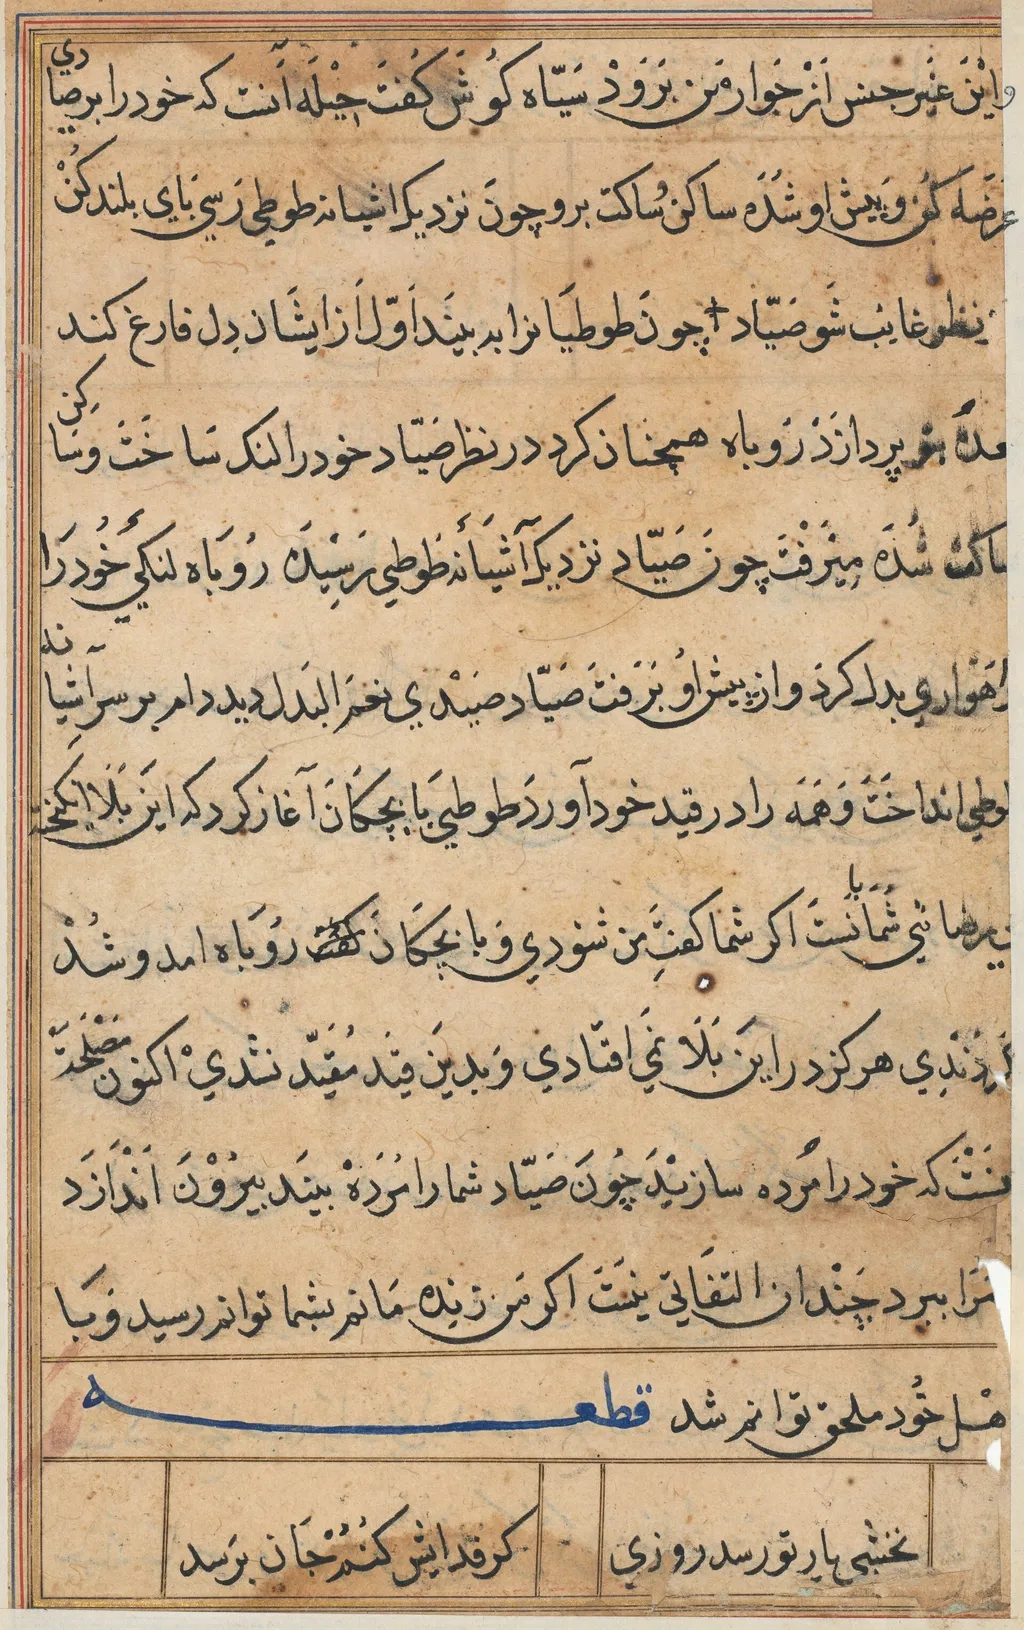 واین غیر جنس از جوار من برود سیاه کوش کفت حیله آنست که خود را بر صیادی
عرضه کن و پیش او شده ساکن و ساکت برو چون نزدیک اشیانه طوطی رسی بای بلند کن
نظر غایب شو صیاد چون طوطیانرا به بیند اول از ایشان دل فارغ کند
بتو پردازد روباه همچنان کرد در نظر صیاد خود را لنک ساخت و ساکن
ساکت شده میرفت چون صیاد نزدیک آشیانه طوطی رسیده روباه لنکی خود را
راهواری بدل کرد و از پیش او برفت صیاد صیدی نعم البدل دید دام بر سر آشیانه
طوطی انداخت و همه را در قید خود آورد طوطی با بچکان آغاز کرد که این بلا انکیخته
شمانست اکر شما کفت من شنودی و با بچکان روباه امد و شد
نکردندی هرکز در این بلا نمی افتادی و بدین قید مقید نشدی اکنون مصلحت
انست که خود را مرده سازید چون صیاد شما را مرده بیند بیرون اندازد
مرا ببرد چندان التفاتی نیست اکر من زنده مانم بشما توانم رسید و با
اهل خود ملحق توانم شد قطعه
نخشبی یار تو رسد روزی
کر فدایش کنم جان برسد